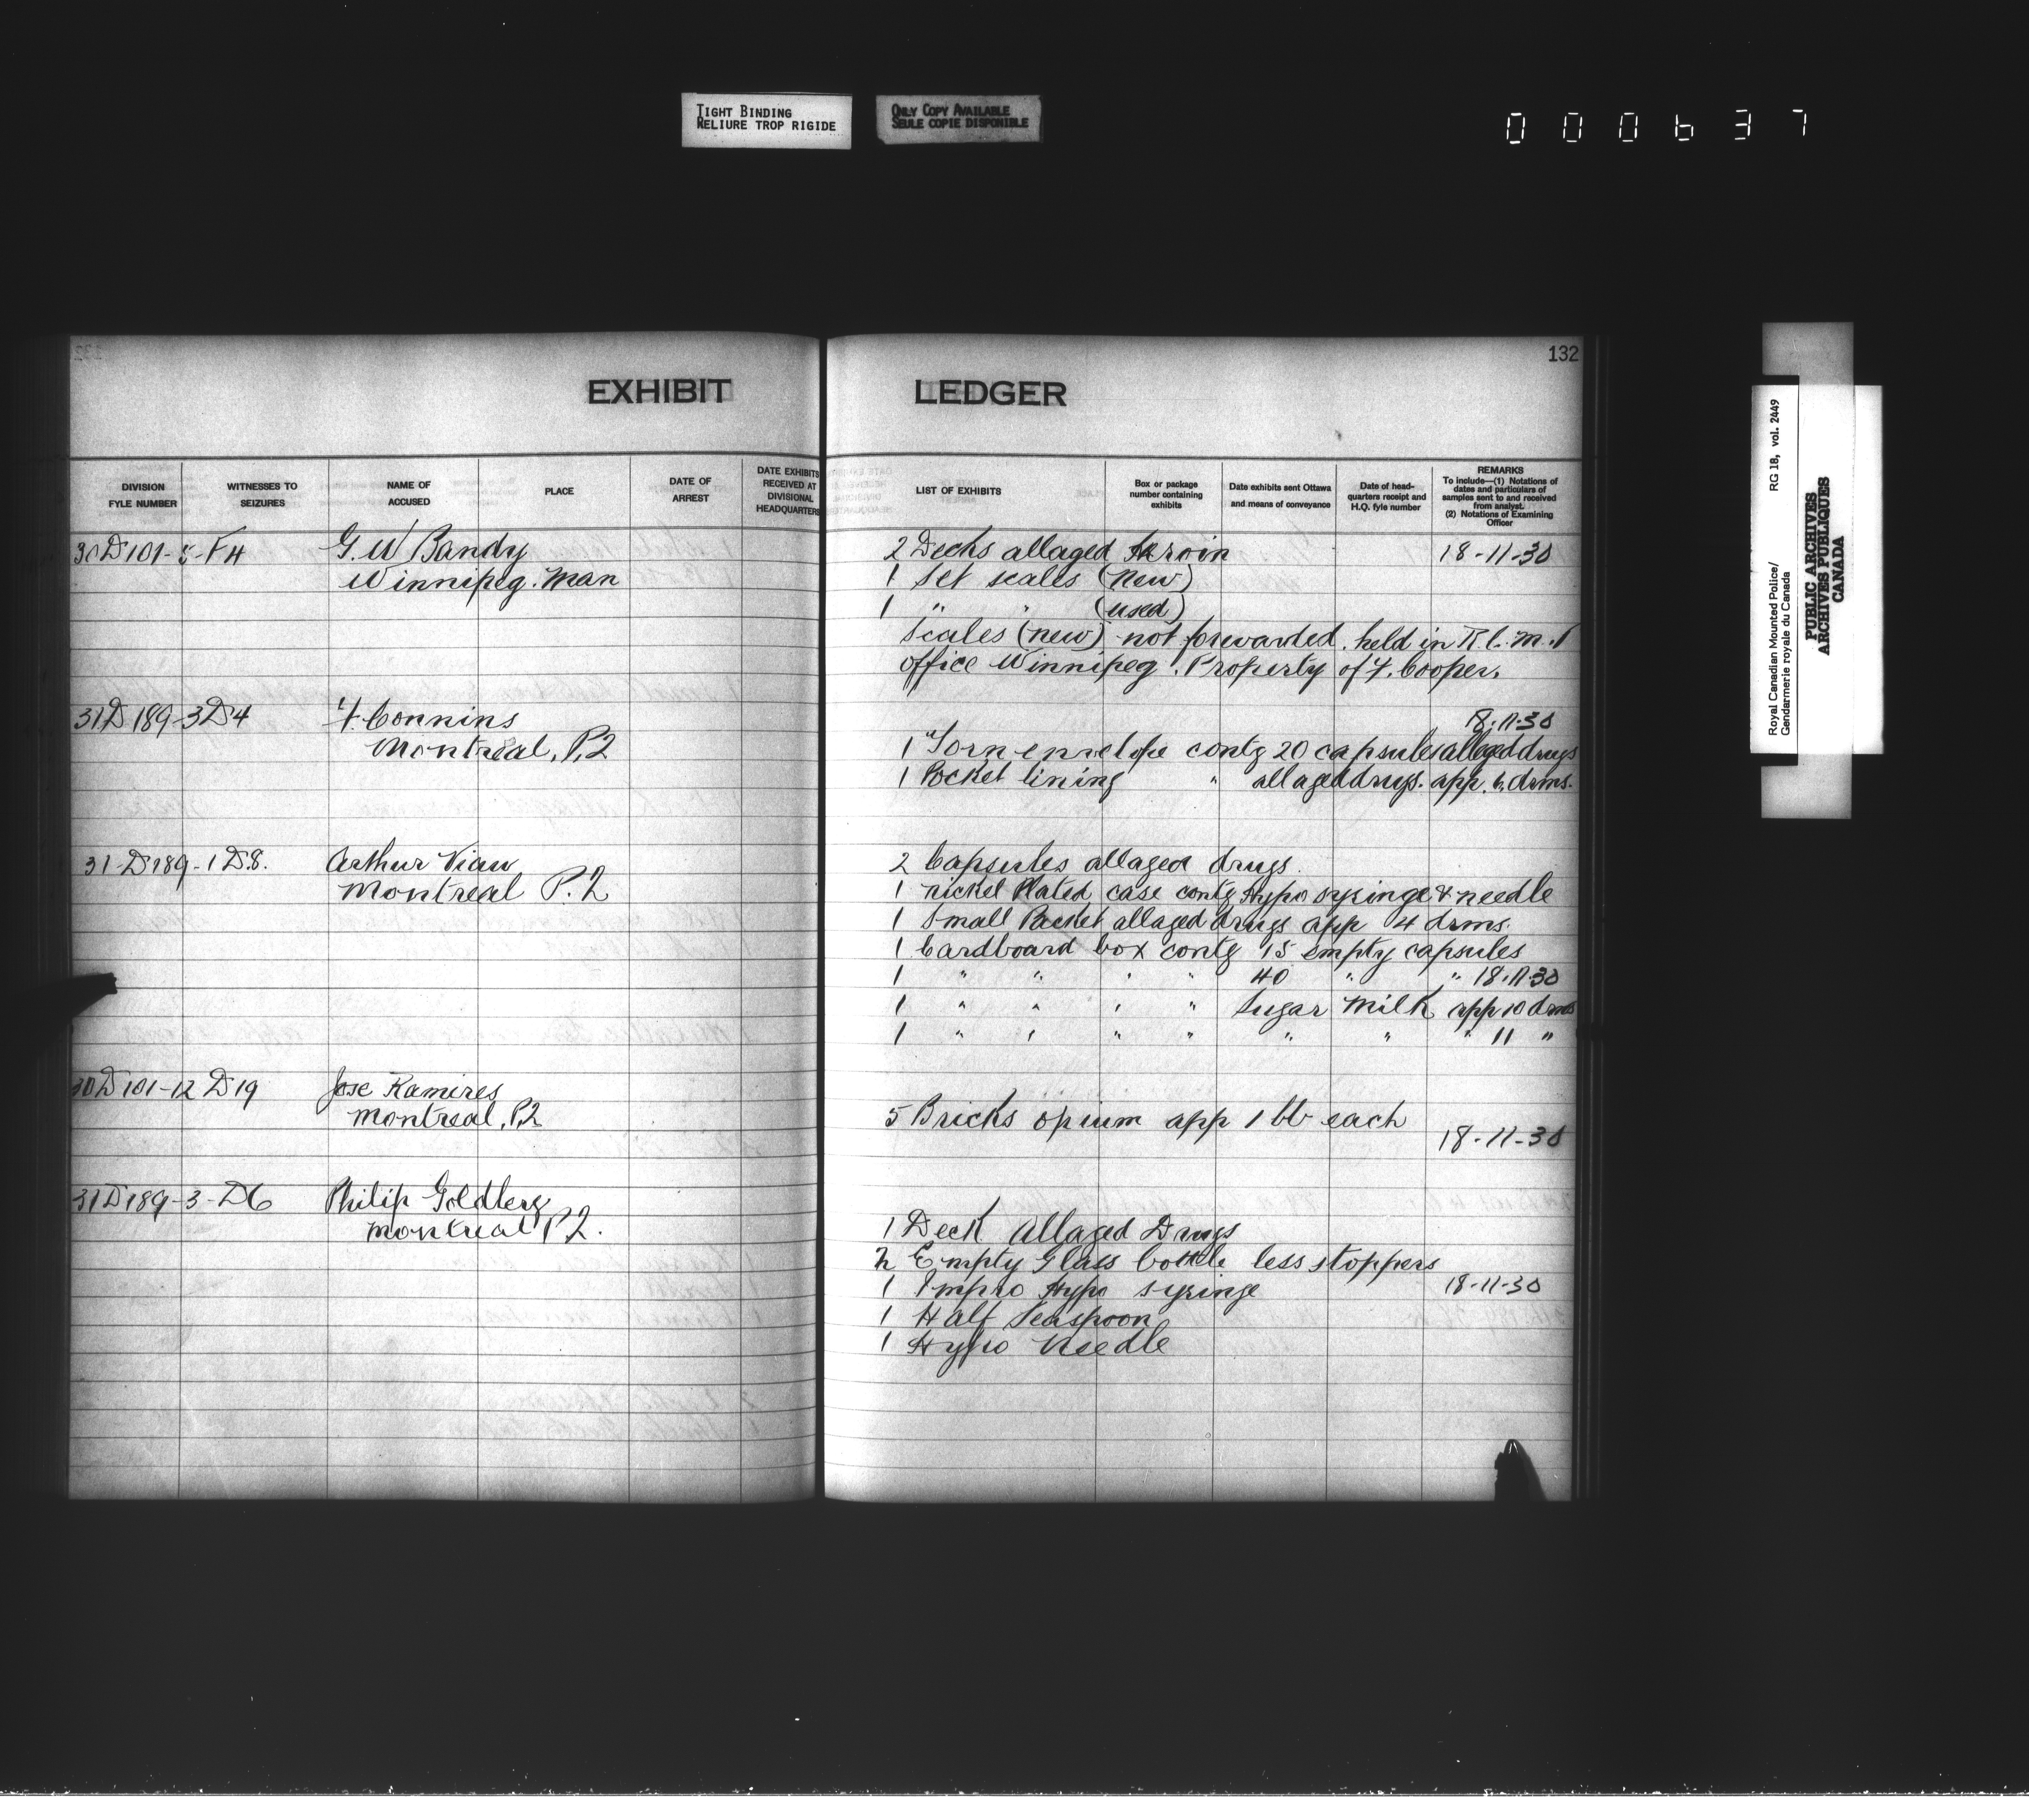 TIGHT BINDING
RELIURE TROP RIGIDE
ONLY COPY AVAILABLE
SEULE COPIE DISPONIBLE
000637
132
EXHIBIT LEDGER
DIVISION FYLE NUMBER
WITNESSES TO SEIZURES
NAME OF ACCUSED
PLACE
DATE OF ARREST
DATE EXHIBITS RECEIVED AT DIVISIONAL HEADQUARTERS
LIST OF EXHIBITS
Box or package number containing exhibits
Date exhibits sent Ottawa and means of conveyance
Date of headquarters receipt and H.Q. fyle number
REMARKS
To include—(1) Notations of dates and particulars of samples sent to and received from analyst.
(2) Notations of Examining Officer
30D101-5-F4 G. W Bandy 2 Decks allaged Heroin 18-11-30
Winnipeg. Man 1 Set scales (new)
1 " " (used)
Scales (new) not forwarded. held in R.C.M.P
office Winnipeg. Property of F. Cooper.
31D189-3D4 F. Connins 18-11-30
Montreal, P.2 1 Torn envelope contg 20 capsules alleged drugs
1 Pocket lining " allaged drugs. app. 6. drms.
31-D189-1D8. Arthur Viau 2 Capsules allaged drugs.
Montreal P.2 1 nickel Plated case contg Hypo syringe & needle
1 Small Packet allaged drugs app 4 drms.
1 Cardboard box contg 15 empty capsules
1 " " " " 40 " " 18-11-30
1 " " " " Sugar milk app 10 drms
1 " " " " " " " 11 "
30D101-12D19 Jose Ramires
Montreal, P.2 5 Bricks opium app 1 lb each
18-11-30
31D189-3-D6 Philip Goldberg
Montreal P2. 1 Deck Allaged Drugs
2 Empty Glass bottle less stoppers
1 Impro Hypo syringe 18-11-30
1 Half Teaspoon
1 Hypo Needle
Royal Canadian Mounted Police/
Gendarmerie royale du Canada
RG 18, vol. 2449
PUBLIC ARCHIVES
ARCHIVES PUBLIQUES
CANADA